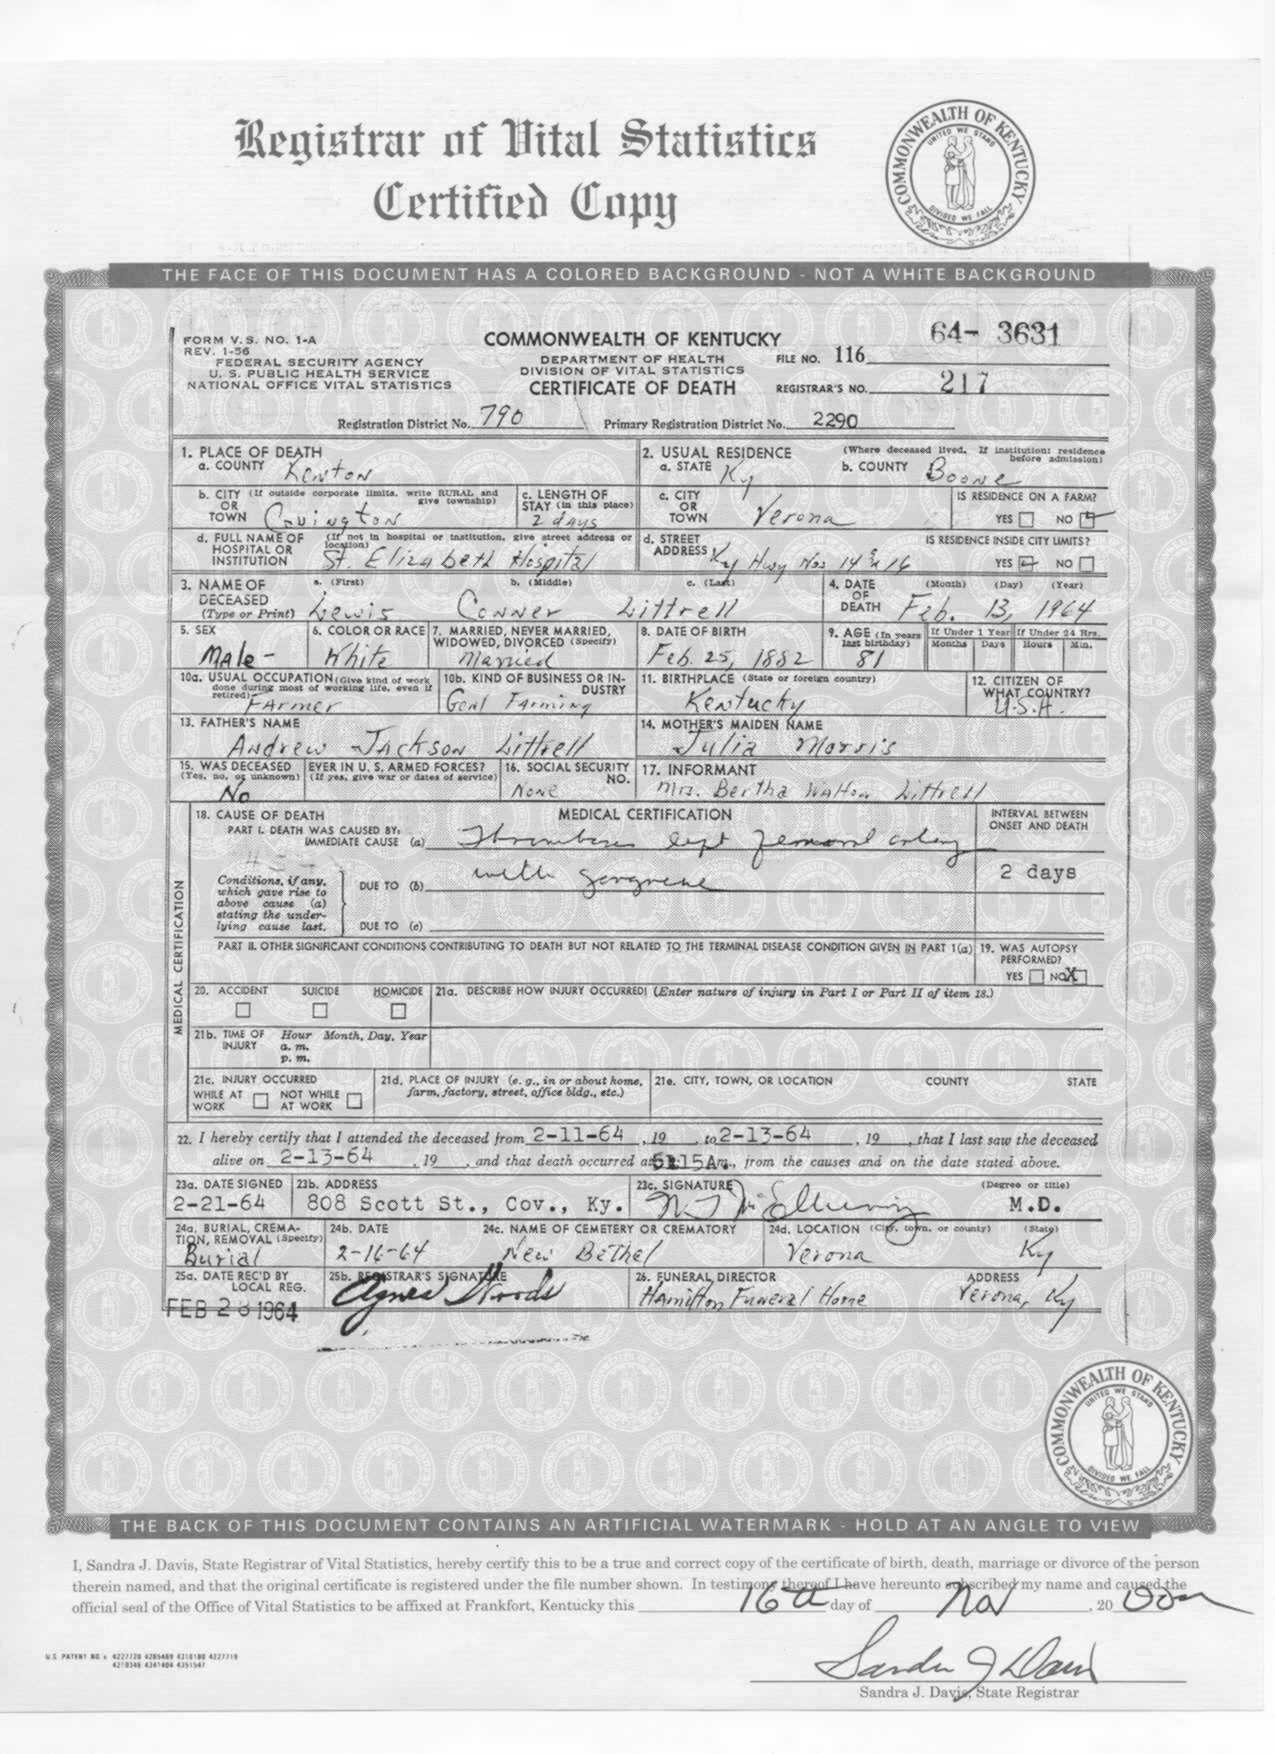 Registrar of Vital Statistics
Certified Copy
COMMONWEALTH OF KENTUCKY
UNITED WE STAND
DIVIDED WE FALL
THE FACE OF THIS DOCUMENT HAS A COLORED BACKGROUND - NOT A WHITE BACKGROUND
FORM V. S. NO. 1-A
REV. 1-56
FEDERAL SECURITY AGENCY
U. S. PUBLIC HEALTH SERVICE
NATIONAL OFFICE VITAL STATISTICS
COMMONWEALTH OF KENTUCKY
DEPARTMENT OF HEALTH
DIVISION OF VITAL STATISTICS
CERTIFICATE OF DEATH
64- 3631
FILE NO. 116
REGISTRAR'S NO. 217
Registration District No. 790 Primary Registration District No. 2290
1. PLACE OF DEATH
a. COUNTY Kenton
2. USUAL RESIDENCE (Where deceased lived. If institution: residence before admission)
a. STATE Ky b. COUNTY Boone
b. CITY (If outside corporate limits, write RURAL and give township)
OR
TOWN Covington
c. LENGTH OF STAY (in this place)
2 days
c. CITY
OR
TOWN Verona
IS RESIDENCE ON A FARM?
YES NO
d. FULL NAME OF HOSPITAL OR INSTITUTION (If not in hospital or institution, give street address or location)
St. Elizabeth Hospital
d. STREET ADDRESS Ky Hwy Nos 14 & 16
IS RESIDENCE INSIDE CITY LIMITS?
YES NO
3. NAME OF DECEASED (Type or Print) a. (First) b. (Middle) c. (Last)
Lewis Conner Littrell
4. DATE OF DEATH (Month) (Day) (Year)
Feb. 13, 1964
5. SEX
Male -
6. COLOR OR RACE
White
7. MARRIED, NEVER MARRIED, WIDOWED, DIVORCED (Specify)
Married
8. DATE OF BIRTH
Feb. 25, 1882
9. AGE (In years last birthday)
81
If Under 1 Year If Under 24 Hrs.
Months Days Hours Min.
10a. USUAL OCCUPATION (Give kind of work done during most of working life, even if retired)
Farmer
10b. KIND OF BUSINESS OR INDUSTRY
Genl Farming
11. BIRTHPLACE (State or foreign country)
Kentucky
12. CITIZEN OF WHAT COUNTRY?
U.S.A.
13. FATHER'S NAME
Andrew Jackson Littrell
14. MOTHER'S MAIDEN NAME
Julia Morris
15. WAS DECEASED EVER IN U. S. ARMED FORCES?
(Yes, no, or unknown) (If yes, give war or dates of service)
No
16. SOCIAL SECURITY NO.
None
17. INFORMANT
Mrs. Bertha Walton Littrell
MEDICAL CERTIFICATION
18. CAUSE OF DEATH MEDICAL CERTIFICATION
PART I. DEATH WAS CAUSED BY:
IMMEDIATE CAUSE (a) Thrombosis left femoral artery
INTERVAL BETWEEN ONSET AND DEATH
2 days
Conditions, if any, which gave rise to above cause (a) stating the underlying cause last.
DUE TO (b) with gangrene
DUE TO (c)
PART II. OTHER SIGNIFICANT CONDITIONS CONTRIBUTING TO DEATH BUT NOT RELATED TO THE TERMINAL DISEASE CONDITION GIVEN IN PART 1(a)
19. WAS AUTOPSY PERFORMED?
YES NO X
20. ACCIDENT SUICIDE HOMICIDE
21a. DESCRIBE HOW INJURY OCCURRED! (Enter nature of injury in Part I or Part II of item 18.)
21b. TIME OF INJURY Hour Month, Day, Year
a. m.
p. m.
21c. INJURY OCCURRED
WHILE AT WORK NOT WHILE AT WORK
21d. PLACE OF INJURY (e. g., in or about home, farm, factory, street, office bldg., etc.)
21e. CITY, TOWN, OR LOCATION COUNTY STATE
22. I hereby certify that I attended the deceased from 2-11-64, 19 , to 2-13-64, 19 , that I last saw the deceased
alive on 2-13-64, 19 , and that death occurred at 5:15Am., from the causes and on the date stated above.
23a. DATE SIGNED
2-21-64
23b. ADDRESS
808 Scott St., Cov., Ky.
23c. SIGNATURE (Degree or title)
M.D.
24a. BURIAL, CREMATION, REMOVAL (Specify)
Burial
24b. DATE
2-16-64
24c. NAME OF CEMETERY OR CREMATORY
New Bethel
24d. LOCATION (City, town, or county) (State)
Verona Ky
25a. DATE REC'D BY LOCAL REG.
FEB 28 1964
25b. REGISTRAR'S SIGNATURE
Agnes Woods
26. FUNERAL DIRECTOR ADDRESS
Hamilton Funeral Home Verona, Ky
COMMONWEALTH OF KENTUCKY
UNITED WE STAND
DIVIDED WE FALL
THE BACK OF THIS DOCUMENT CONTAINS AN ARTIFICIAL WATERMARK - HOLD AT AN ANGLE TO VIEW
I, Sandra J. Davis, State Registrar of Vital Statistics, hereby certify this to be a true and correct copy of the certificate of birth, death, marriage or divorce of the person
therein named, and that the original certificate is registered under the file number shown. In testimony thereof I have hereunto subscribed my name and caused the
official seal of the Office of Vital Statistics to be affixed at Frankfort, Kentucky this 16th day of Nov , 20
Sandra J Davis
Sandra J. Davis, State Registrar
U.S. PATENT NO.s 4227720 4265469 4310180 4227719
4210346 4341404 4351547